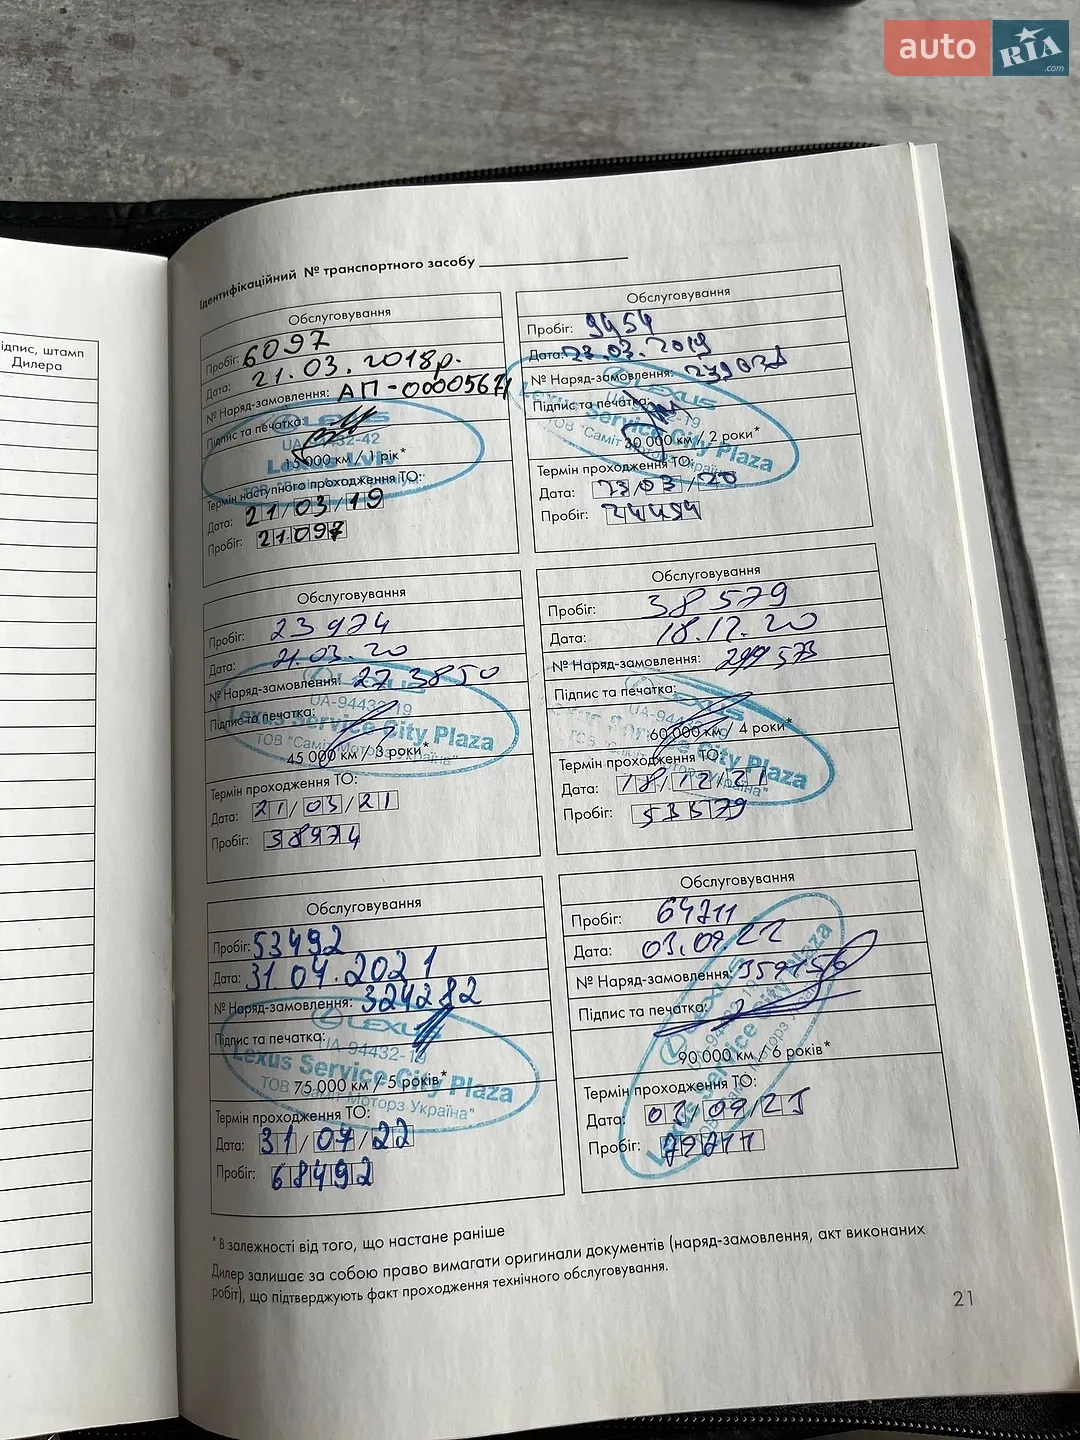 auto RIA.com
ідпис, штамп
Дилера
Ідентифікаційний № транспортного засобу
Обслуговування
Пробіг: 6097
Дата: 21.03.2018р.
№ Наряд-замовлення: АП-00005671
Підпис та печатка:
LEXUS
UA-94432-42
Lexus Lviv
15 000 км / 1 рік*
Термін наступного проходження ТО:
Дата: 21/03/19
Пробіг: 21097
Обслуговування
Пробіг: 9454
Дата: 23.03.2019
№ Наряд-замовлення:
Підпис та печатка:
LEXUS
Lexus Service City Plaza
30 000 км / 2 роки*
Термін проходження ТО:
Дата: 23/03/20
Пробіг: 24454
Обслуговування
Пробіг: 23974
Дата: 21.03.20
№ Наряд-замовлення: 273850
Підпис та печатка:
LEXUS
UA-94432-19
Lexus Service City Plaza
ТОВ "Саміт Моторз Україна"
45 000 км / 3 роки*
Термін проходження ТО:
Дата: 21/03/21
Пробіг: 38974
Обслуговування
Пробіг: 38579
Дата: 18.12.20
№ Наряд-замовлення:
Підпис та печатка:
LEXUS
60 000 км / 4 роки*
City Plaza
Термін проходження ТО:
Дата: 18/12/21
Пробіг: 53579
Обслуговування
Пробіг: 53492
Дата: 31.07.2021
№ Наряд-замовлення: 324282
Підпис та печатка:
LEXUS
UA-94432-19
Lexus Service City Plaza
ТОВ "Саміт Моторз Україна"
75 000 км / 5 років*
Термін проходження ТО:
Дата: 31/07/22
Пробіг: 68492
Обслуговування
Пробіг: 64711
Дата: 03.09.22
№ Наряд-замовлення:
Підпис та печатка:
LEXUS
Lexus Service City Plaza
90 000 км / 6 років*
Термін проходження ТО:
Дата: 03/09/23
Пробіг: 79711
* В залежності від того, що настане раніше
Дилер залишає за собою право вимагати оригинали документів (наряд-замовлення, акт виконаних
робіт), що підтверджують факт проходження технічного обслуговування.
21